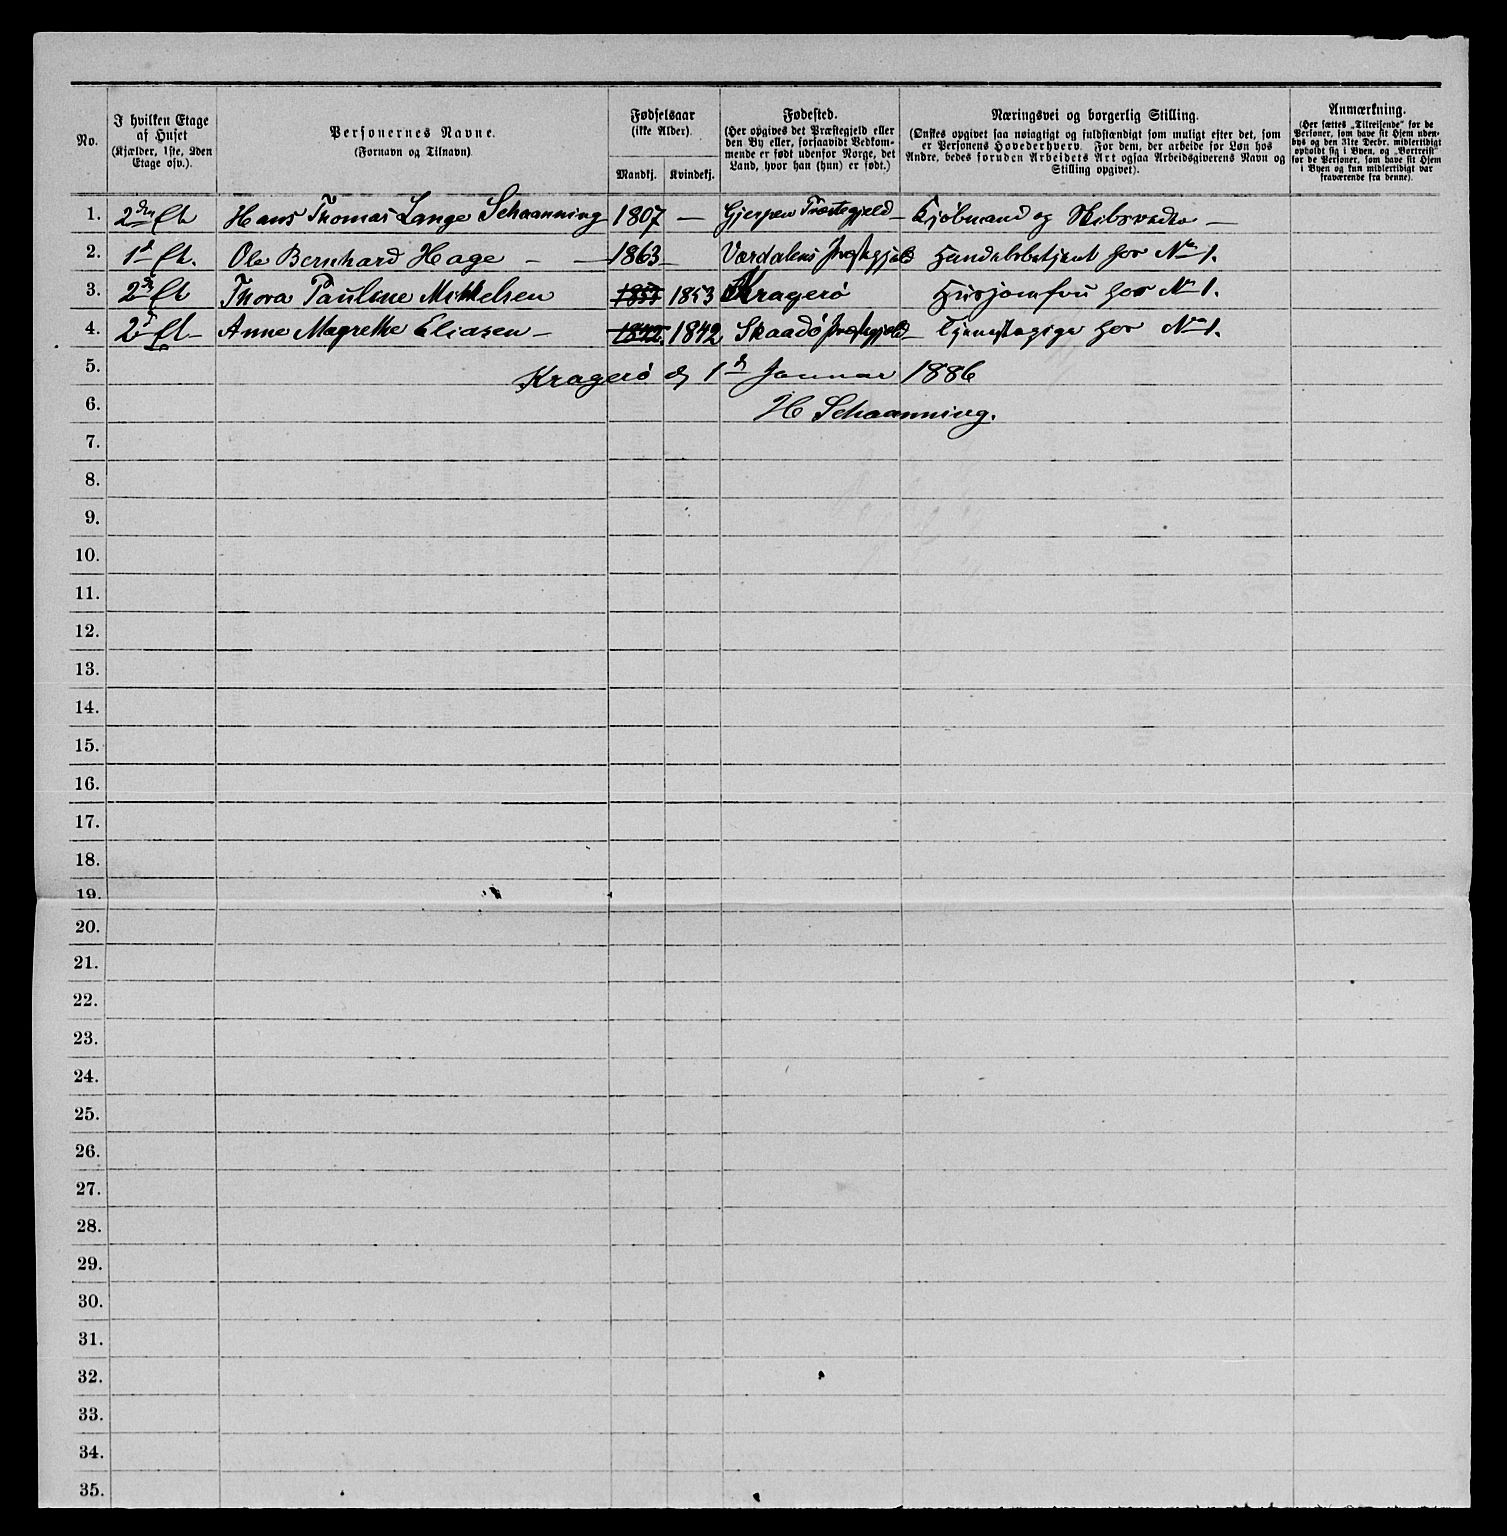 No.
I hvilken Etage
af Huset
(Kjælder, 1ste, 2den
Etage osv.).
Personernes Navne.
(Fornavn og Tilnavn).
Fødselsaar
(ikke Alder).
Mandkj. Kvindekj.
Fødested.
(Her opgives det Præstegjeld eller
den By eller, forsaavidt Vedkom-
mende er født udenfor Norge, det
Land, hvor han (hun) er født.)
Næringsvei og borgerlig Stilling.
(Ønskes opgivet saa nøiagtigt og fuldstændigt som muligt efter det, som
er Personens Hovederhverv. For dem, der arbeide for Løn hos
Andre, bedes foruden Arbeidets Art ogsaa Arbeidsgiverens Navn og
Stilling opgivet).
Anmærkning.
(Her sættes „Tilreisende" for de
Personer, som have sit Hjem uden-
bys og den 31te Decbr. midlertidigt
opholdt sig i Byen, og „Bortreist"
for de Personer, som have sit Hjem
i Byen og kun midlertidigt var
fraværende fra denne).
1. 2den Et Hans Thomas Lange Schaanning 1807 — Gjerpen Præstegjeld — Kjøbmand og Skibsreder —
2. 1st Et. Ole Bernhard Hage — — 1863 — Værdalens Præstegjeld Handelsbetjent hos No 1.
3. 2d Et Thora Pauline Mikkelsen 1853 1853 Kragerö Husjomfru hos No 1.
4. 2d Et — Anne Magrethe Eliasen — 1842 1842 Skaadö Præstegjeld — Tjenestepige hos No 1.
5. Kragerö d 1d Januar 1886
6. H Schaanning.
7.
8.
9.
10.
11.
12.
13.
14.
15.
16.
17.
18.
19.
20.
21.
22.
23.
24.
25.
26.
27.
28.
29.
30.
31.
32.
33.
34.
35.